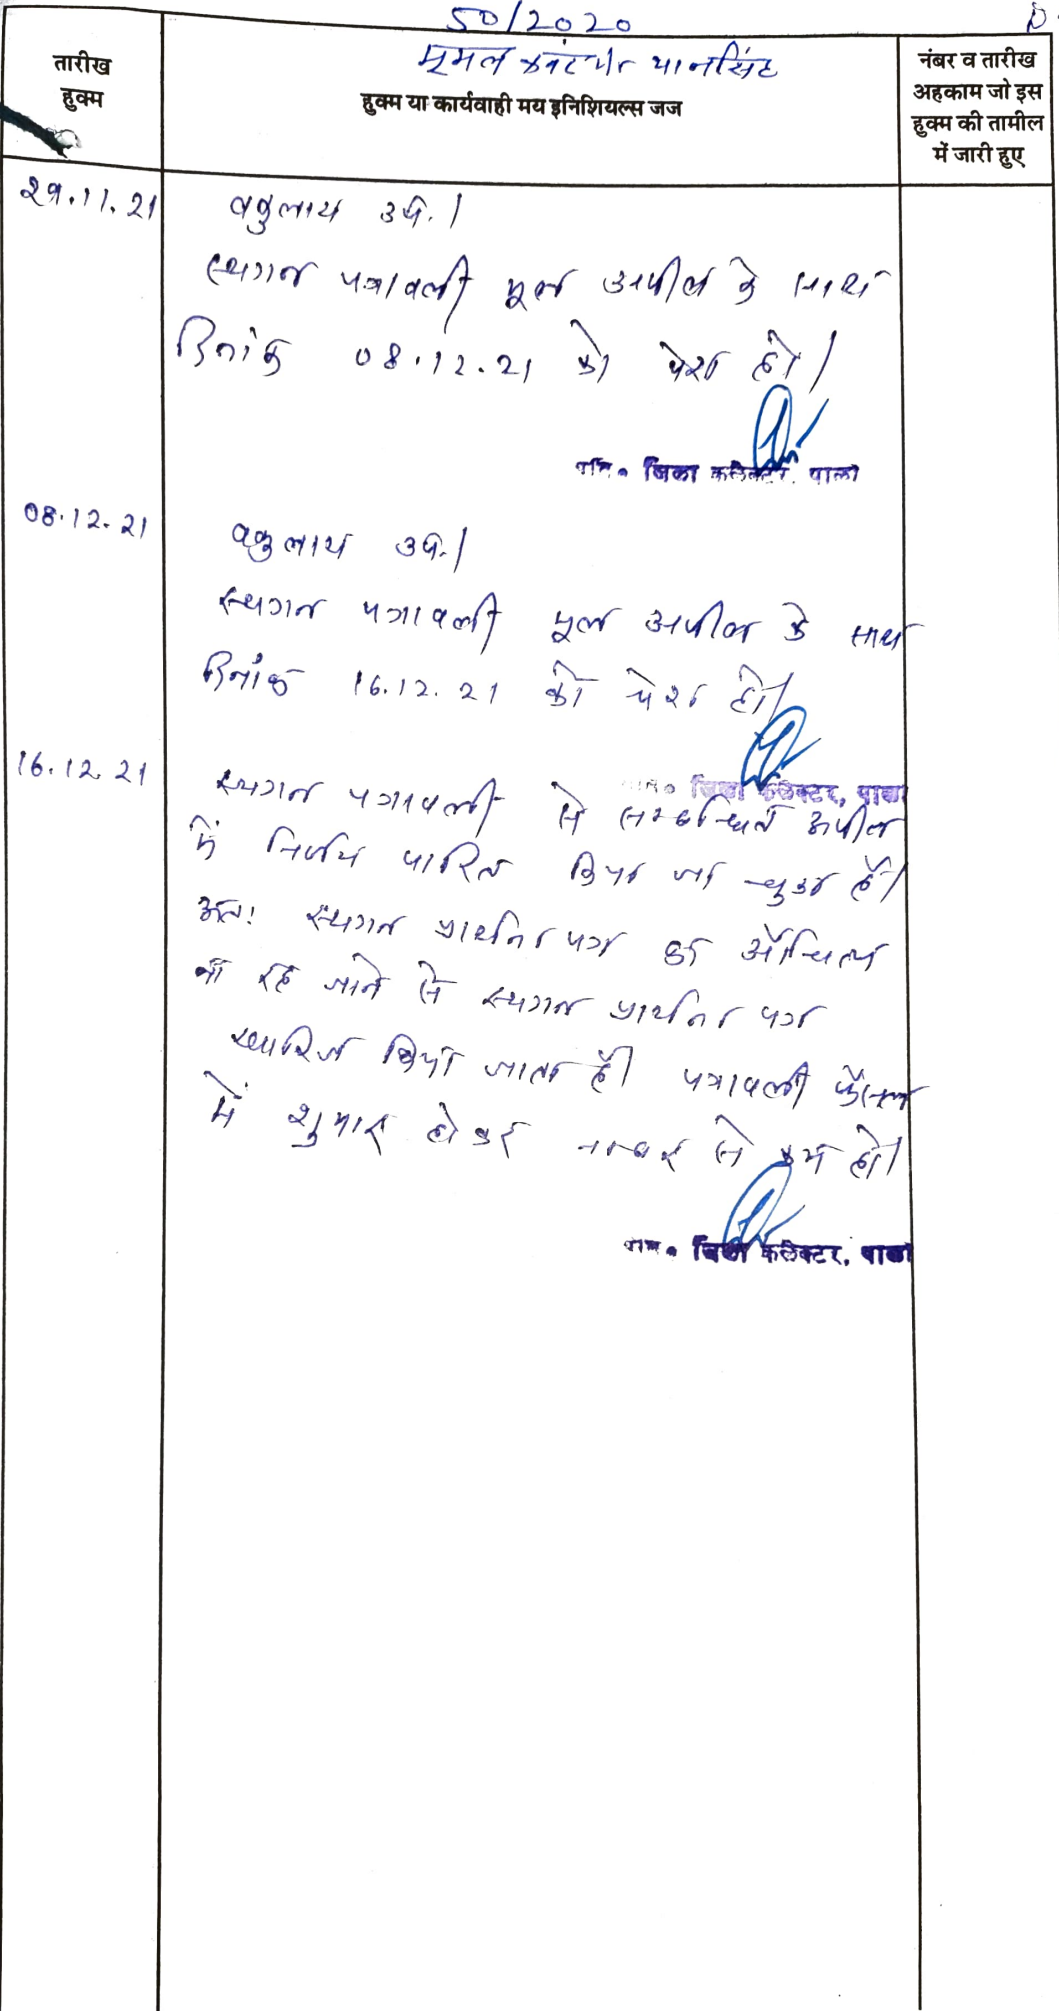 50/2020
मूमल कंवर थानसिंह
तारीख
हुक्म
हुक्म या कार्यवाही मय इनिशियल्स जज
नंबर व तारीख
अहकाम जो इस
हुक्म की तामील
में जारी हुए
29.11.21
वकुलाय उप.।
स्थगन पत्रावली मूल अपील के साथ
दिनांक 08.12.21 को पेश हो।
अति॰ जिला कलेक्टर, पाली
08.12.21
वकुलाय उप.।
स्थगन पत्रावली मूल अपील के साथ
दिनांक 16.12.21 को पेश हो।
अति॰ जिला कलेक्टर, पाली
16.12.21
स्थगन पत्रावली से सम्बन्धित अपील
में निर्णय पारित किया जा चुका है।
अतः स्थगन प्रार्थना पत्र का औचित्य
ना रह जाने से स्थगन प्रार्थना पत्र
खारिज किया जाता है। पत्रावली फैसल
में शुमार होकर नम्बर से कम हो।
अति॰ जिला कलेक्टर, पाली